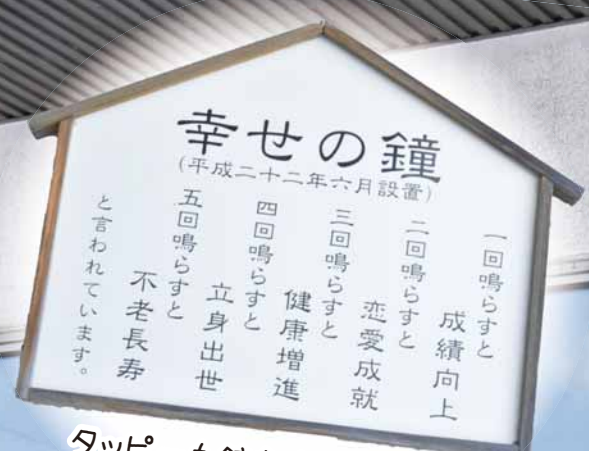 幸せの鐘
(平成二十二年六月設置)
一回鳴らすと
成績向上
二回鳴らすと
恋愛成就
三回鳴らすと
健康増進
四回鳴らすと
立身出世
五回鳴らすと
不老長寿
と言われています。